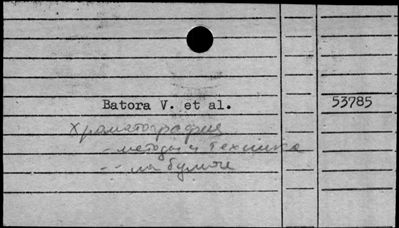 Batora V. et al. 53785
Хроматография
- методы и техника
- - на бумаге